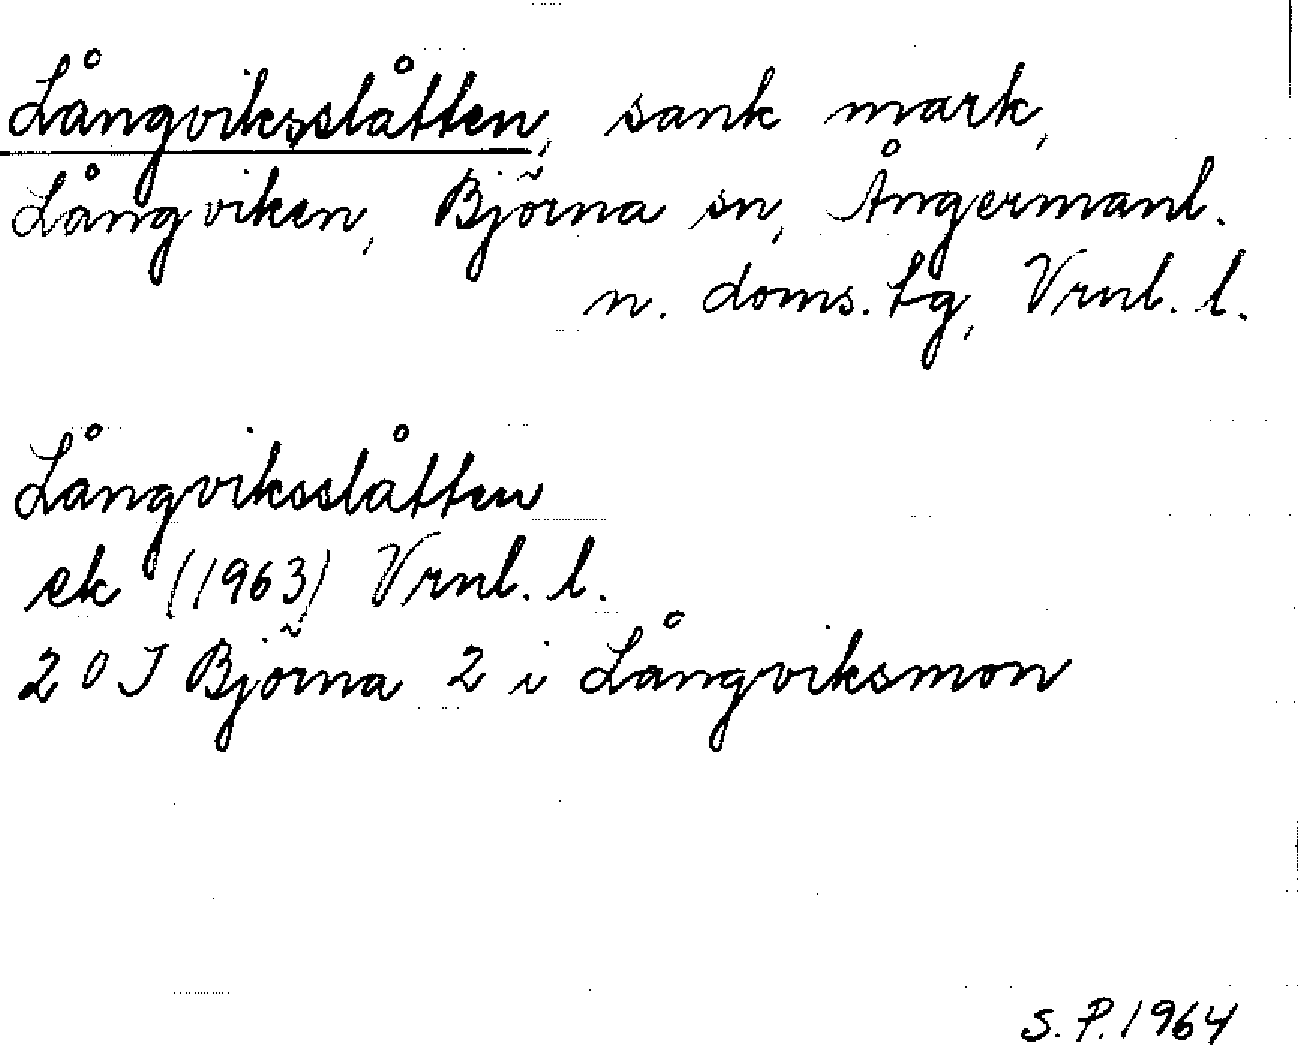 Långviksslåtten, sank mark,
Långviken, Björna sn, Ångermanl.
n. doms. tg, Vrnl. l.
Långviksslåtten
ek (1963) Vrnl. l.
20J Björna 2 i Långviksmon
S. P. 1964